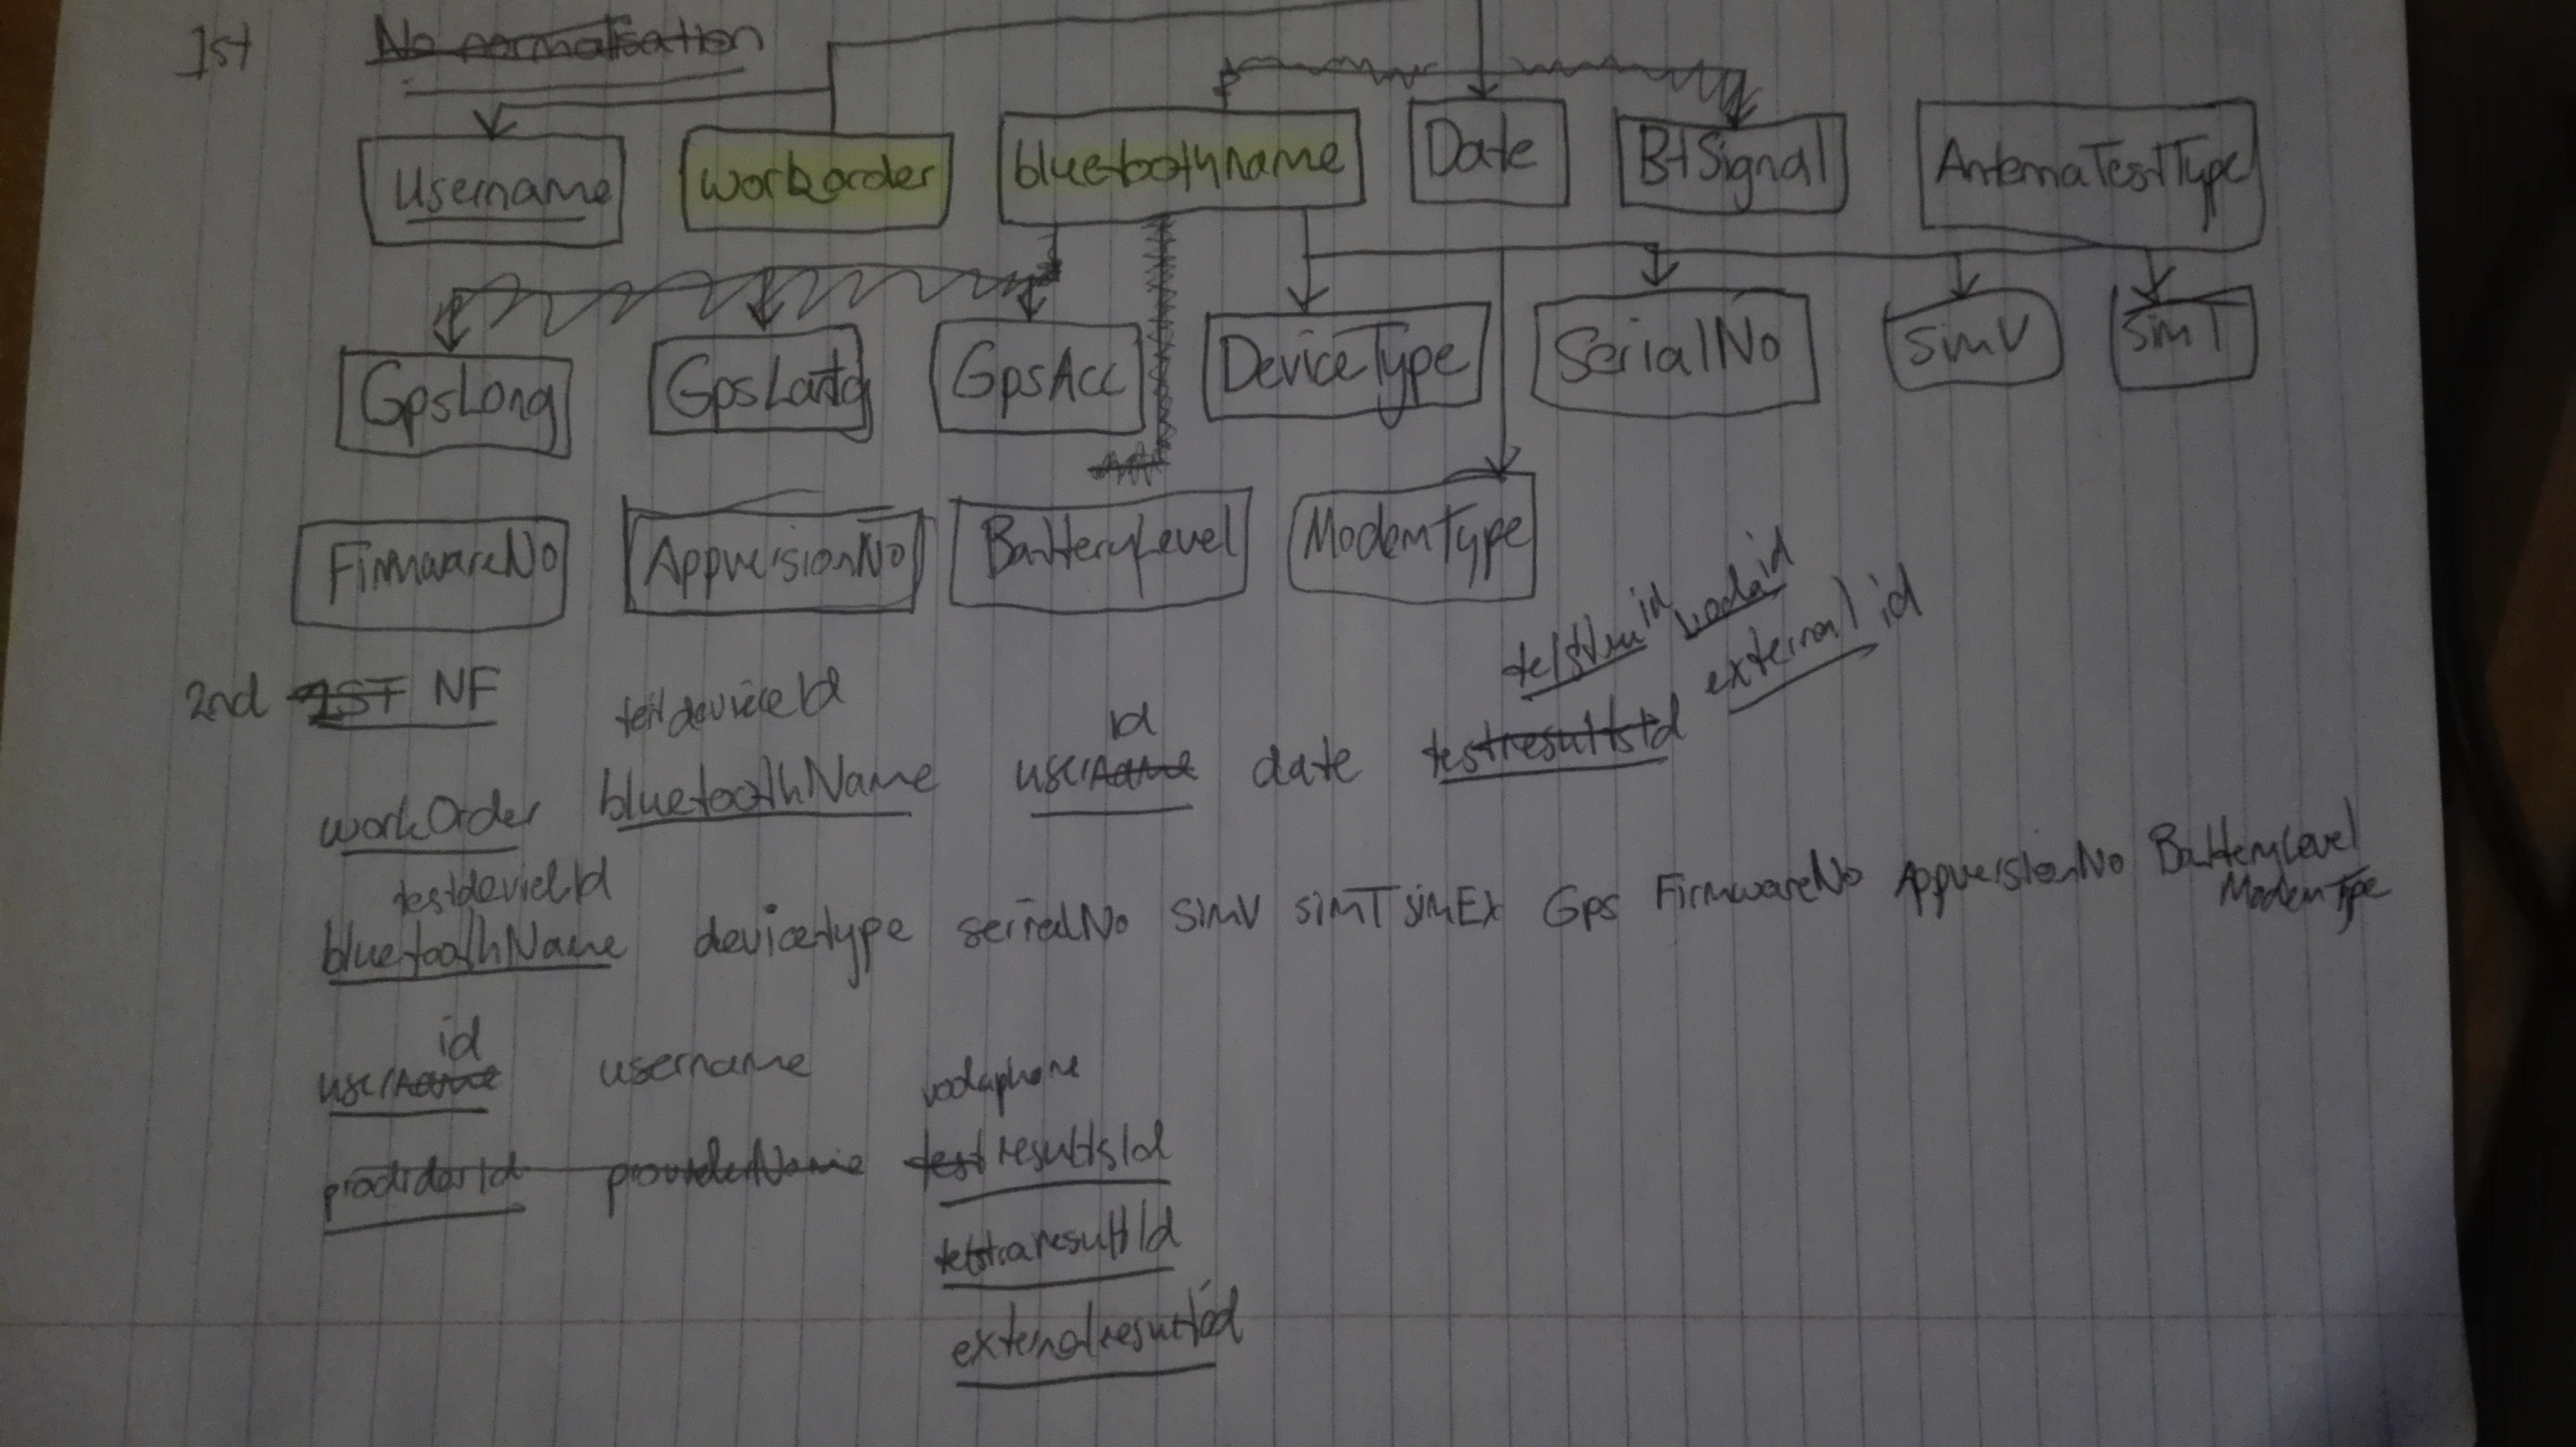 1st No normalisation
Username workorder bluetoothname Date BtSignal AntennaTestType
GpsLong GpsLatg GpsAcc DeviceType SerialNo SimV SimT
FirmwareNo AppversionNo BatteryLevel ModemType
telstra id voda id
external id
2nd 1ST NF
testdeviceId
id
workOrder bluetoothName username date testresultsId
testdeviceId
bluetoothName devicetype serialNo SimV simT simEx Gps FirmwareNo AppversionNo BatteryLevel
ModemType
id
username username
vodaphone
providerId providerName testresultsId
telstraresultId
externalresultid